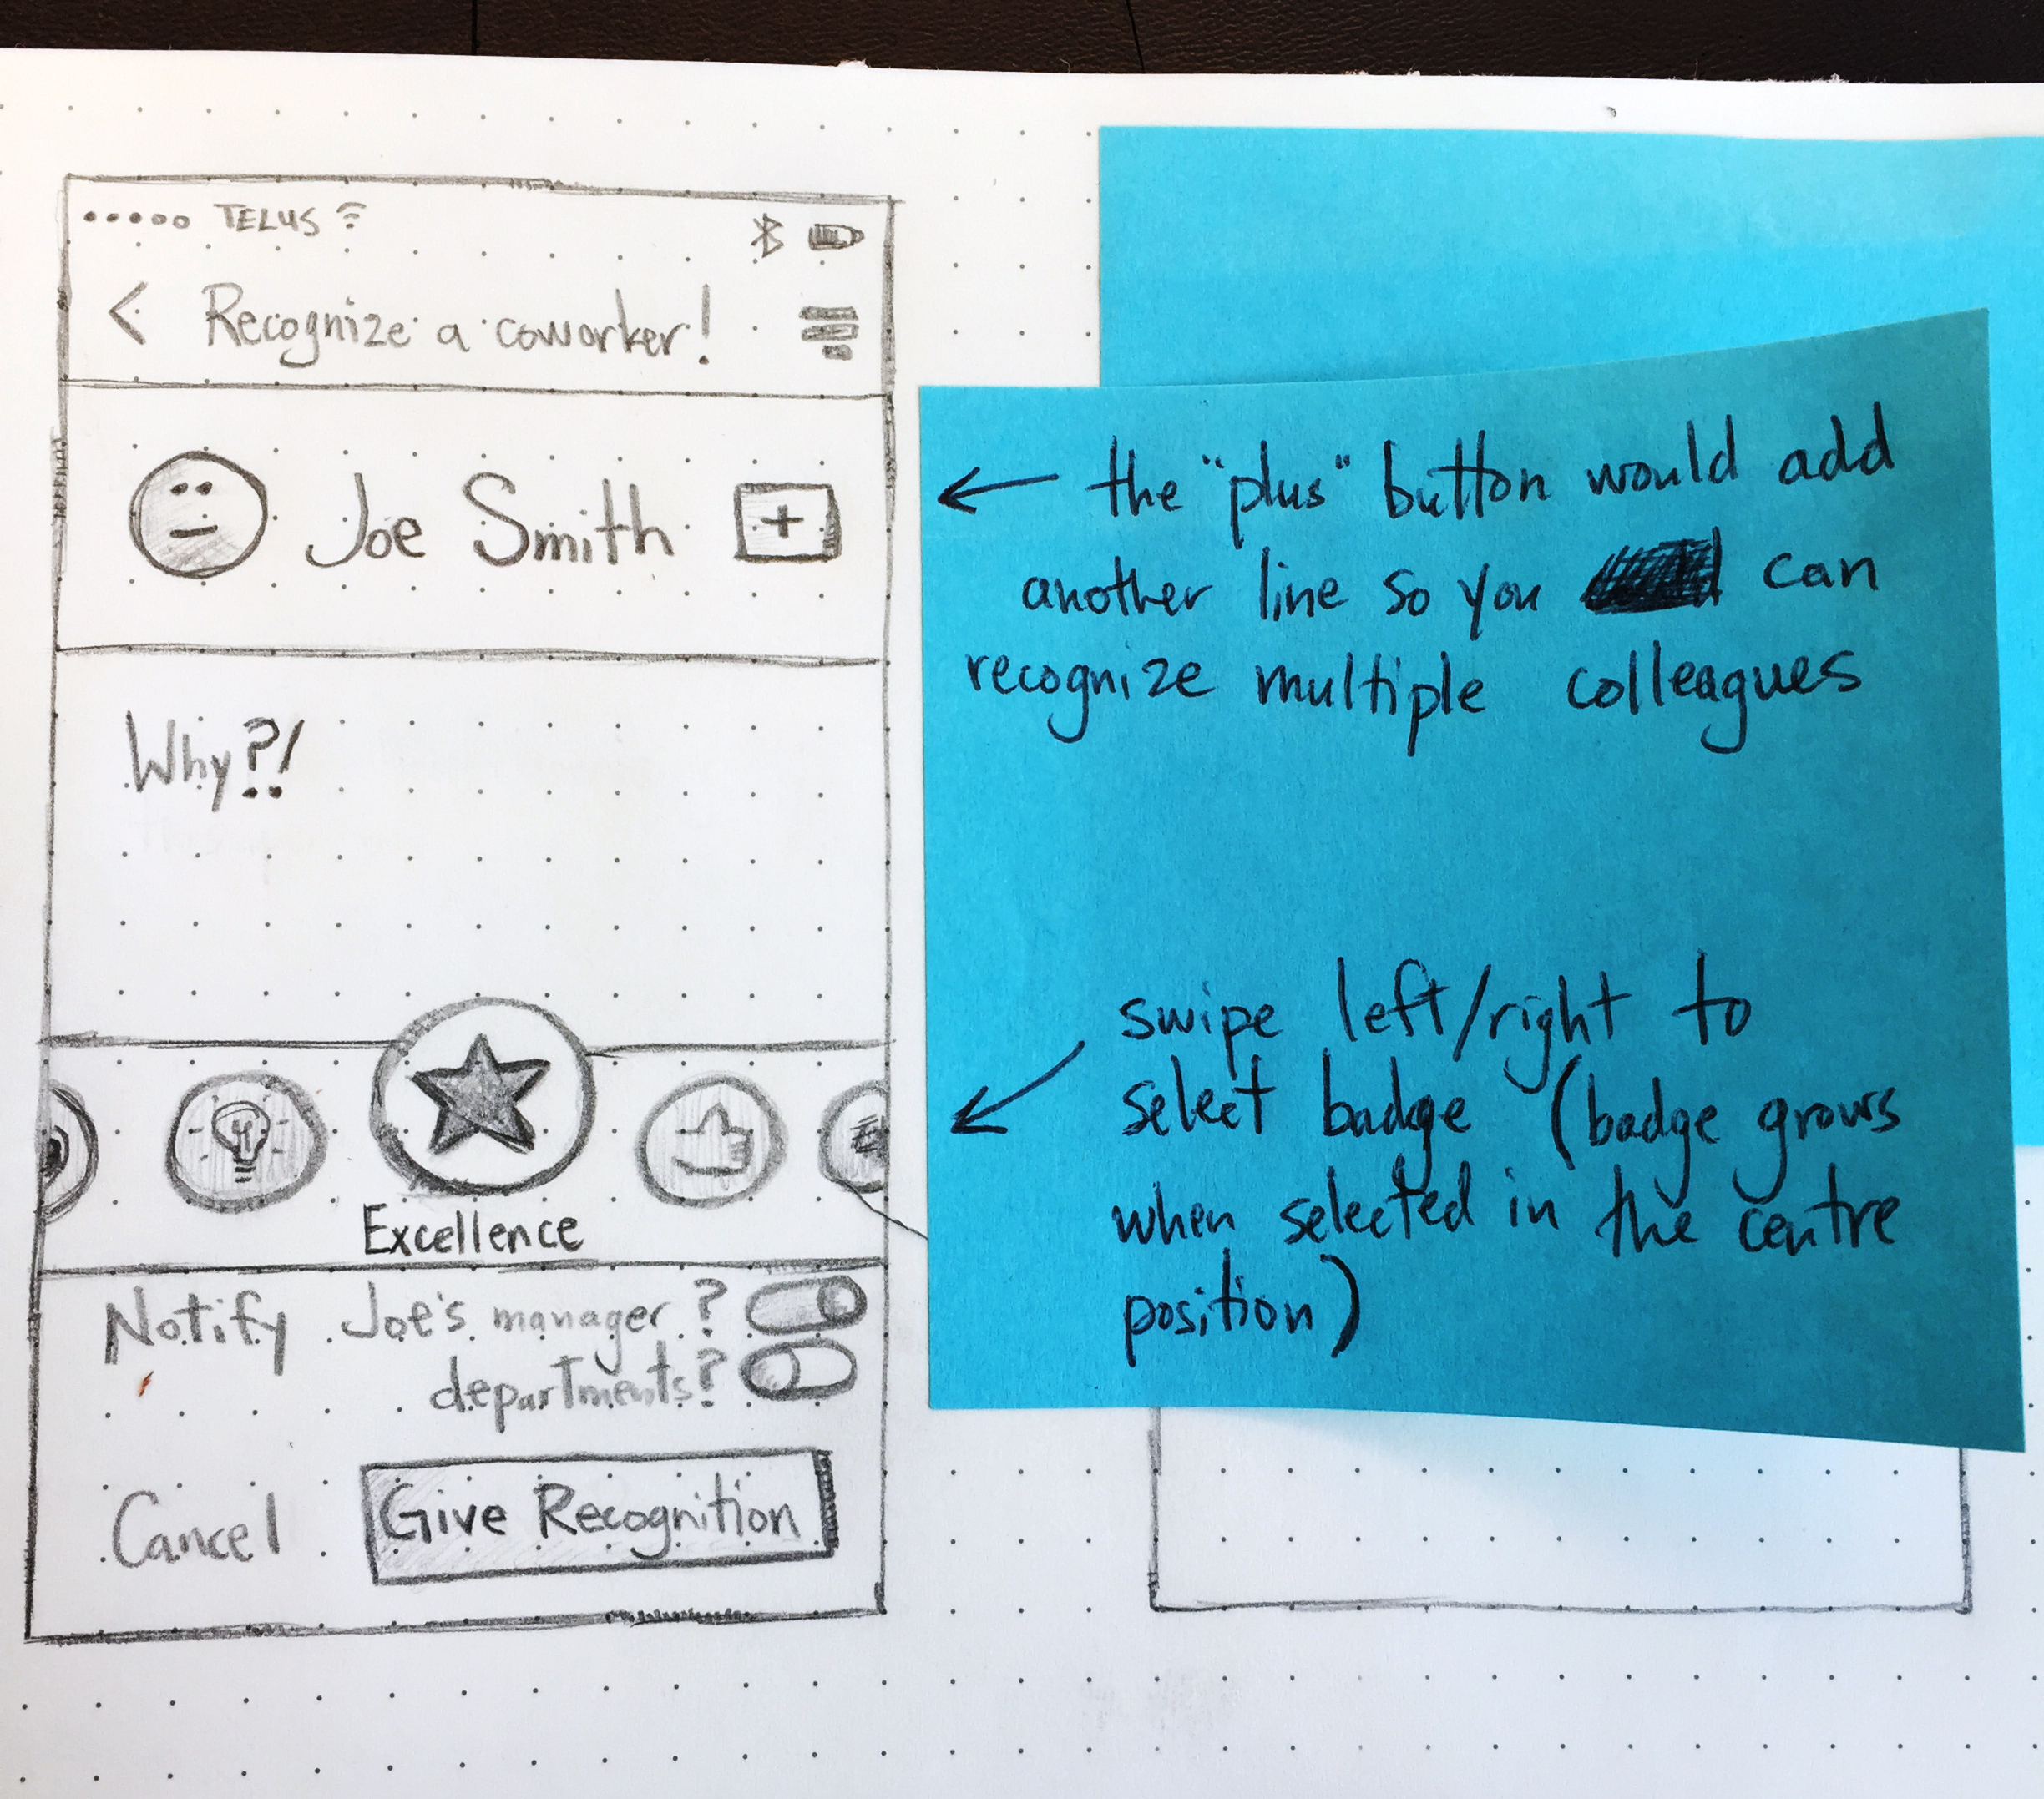 TELUS
< Recognize a coworker!
Joe Smith +
Why?!
Excellence
Notify Joe's manager?
departments?
Cancel Give Recognition
← the "plus" button would add
another line so you can
recognize multiple colleagues
swipe left/right to
select badge (badge grows
when selected in the centre
position)